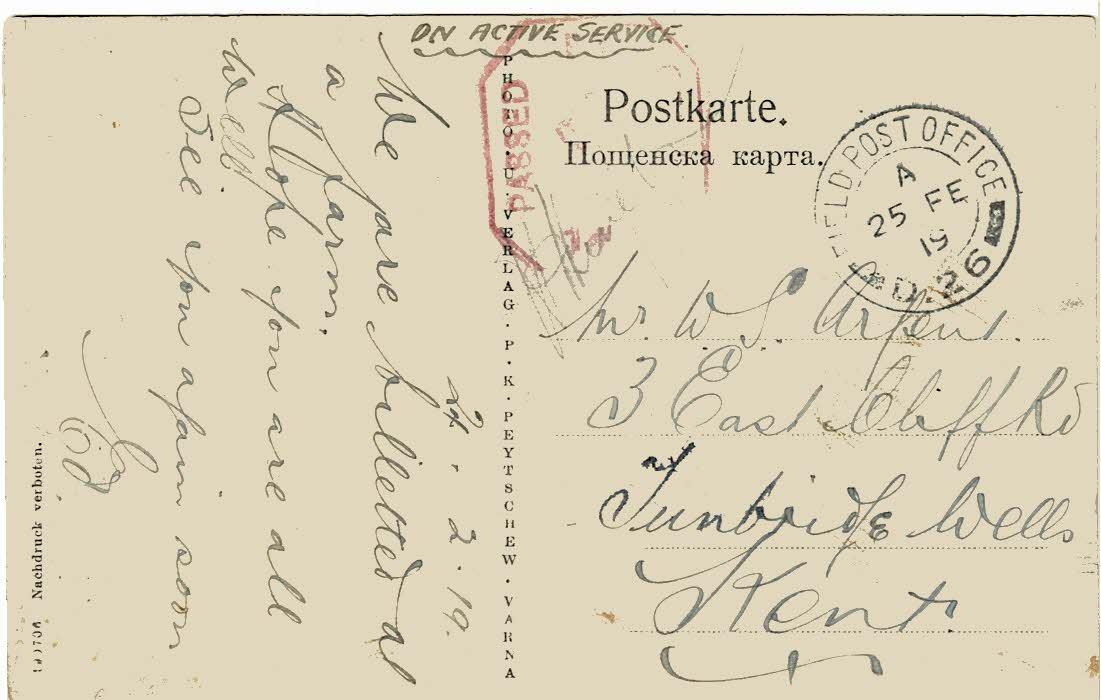 ON ACTIVE SERVICE.
Postkarte.
Пощенска карта.
PASSED
FIELD POST OFFICE
A
25 FE
19
D.26
Mr. W. S.
3 East Cliff Rd
Tunbridge Wells
Kent.
24. 2. 19.
We are billetted at
a Farm.
Hope you are all
well
See you again soon
PHOTO. U. VERLAG. P. K. PEYTSCHEW. VARNA
Nachdruck verboten.